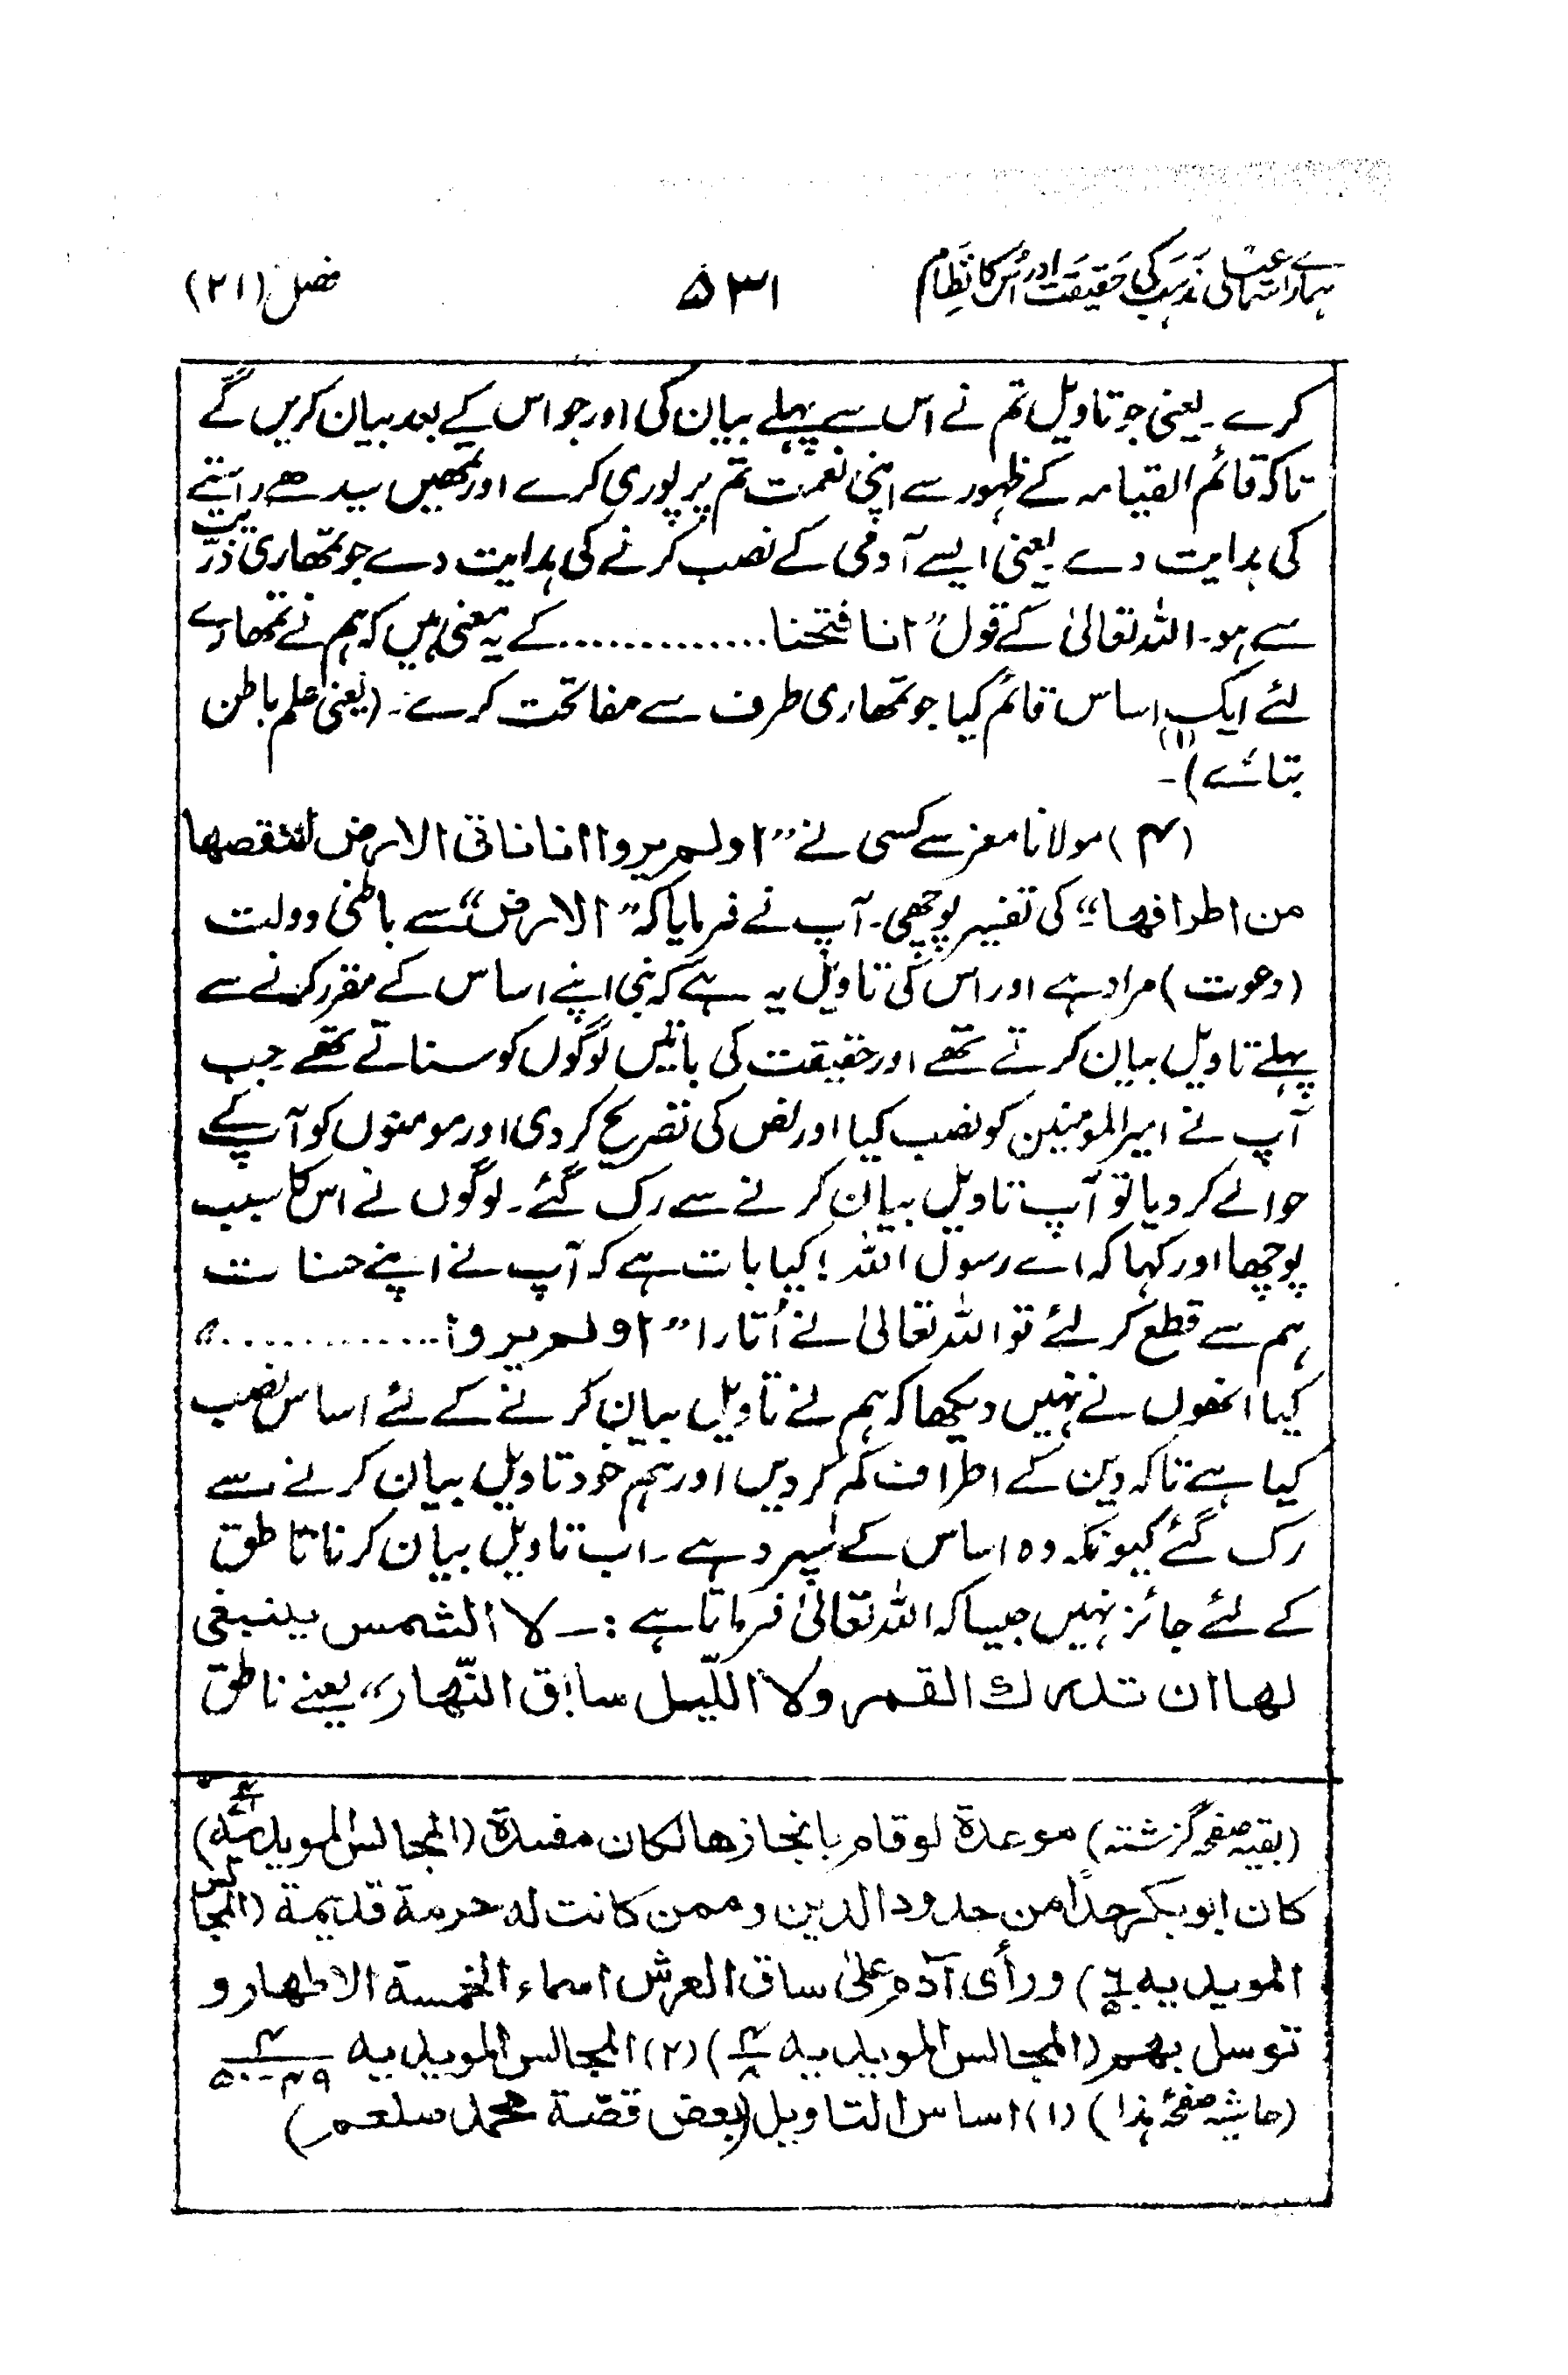 ہمارے اسماعیلی مذہب کی حقیقت اور اُس کا نظام ۵۳۱ فصل (۲۱)
کرے۔ یعنی جو تاویل تم نے اس سے پہلے بیان کی اور جو اس کے بعد بیان کریں گے
تاکہ قائم القیامہ کے ظہور سے اپنی نعمت تم پر پوری کرے اور تمھیں سیدھے راستے
کی ہدایت دے یعنی ایسے آدمی کے نصب کرنے کی ہدایت دے جو تمھاری ذرّیت
سے ہو۔ اللہ تعالیٰ کے قول "انا فتحنا.............. کے یہ معنی ہیں کہ ہم نے تمھارے
لئے ایک اساس قائم کیا جو تمھاری طرف سے مفاتحت کرے۔ (یعنی علم باطن
بتائے)۔ (۱)
(۴) مولانا معز سے کسی نے "اولم یروا انا ناتی الارض لننقصھا
من اطرافھا" کی تفسیر پوچھی۔ آپ نے فرمایا کہ "الارض" سے باطنی دولت
(دعوت) مراد ہے اور اس کی تاویل یہ ہے کہ نبی اپنے اساس کے مقرر کرنے سے
پہلے تاویل بیان کرتے تھے اور حقیقت کی باتیں لوگوں کو سناتے تھے جب
آپ نے امیر المومنین کو نصب کیا اور نص کی تصریح کر دی اور مومنوں کو آپ کے
حوالے کر دیا تو آپ تاویل بیان کرنے سے رک گئے۔ لوگوں نے اس کا سبب
پوچھا اور کہا کہ اے رسول اللہ! کیا بات ہے کہ آپ نے اپنے حسنات
ہم سے قطع کر لئے تو اللہ تعالیٰ نے اُتارا "اولم یروا............"
کیا انھوں نے نہیں دیکھا کہ ہم نے تاویل بیان کرنے کے لئے اساس نصب
کیا ہے تاکہ دین کے اطراف کم کر دیں اور ہم خود تاویل بیان کرنے سے
رک گئے کیونکہ وہ اساس کے سپرد ہے۔ اب تاویل بیان کرنا ناطق
کے لئے جائز نہیں جیسا کہ اللہ تعالیٰ فرماتا ہے :۔ لا الشمس ینبغی
لھا ان تدرک القمر ولا اللّیل سابق النّھار" یعنے ناطق
(بقیہ صفحہ گزشتہ) موعدۃ لو قام بانجازھا لکان مفسدۃ (المجالس المویدیہ)
کان ابوبکر حدًا من حدود الدین وممن کانت لہ حرمۃ قدیمۃ (المجالس
المویدیہ) ورأی آدم علیٰ ساق العرش اسماء الخمسۃ الاطھار و
توسل بھم (المجالس المویدیہ) (۲) المجالس المویدیہ
(حاشیہ صفحۂ ہذا) (۱) اساس التاویل (بعض قصّۃ محمد صلعم)